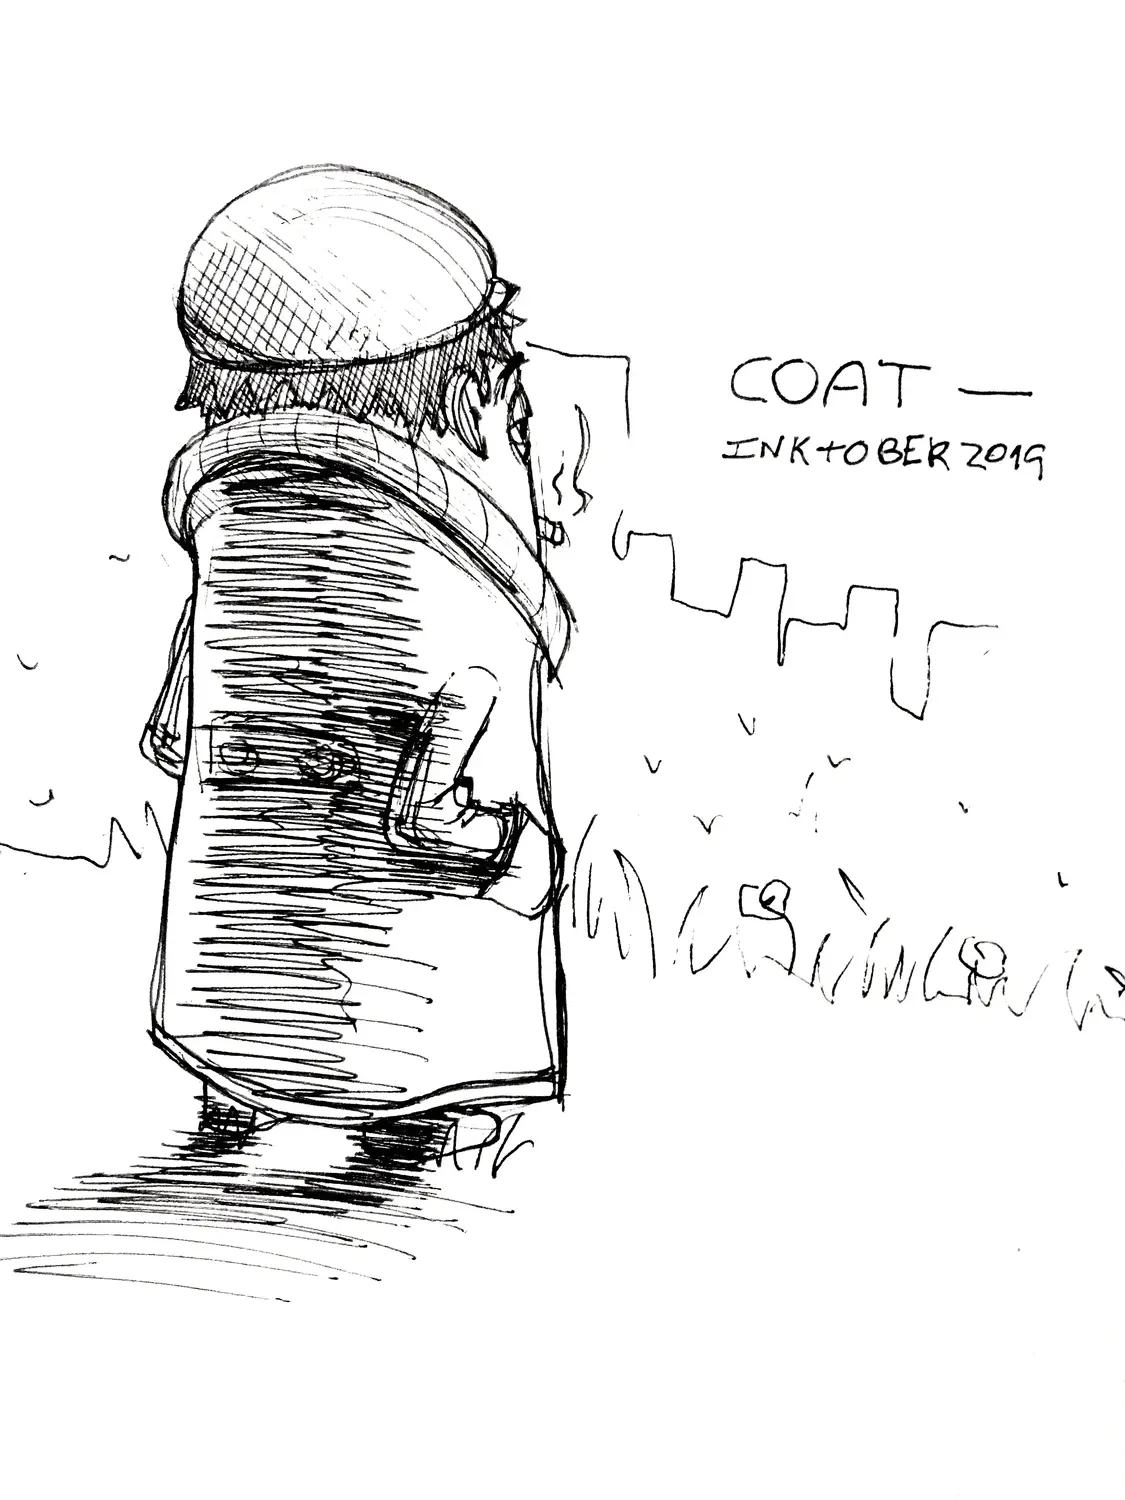 COAT —
INKTOBER 2019